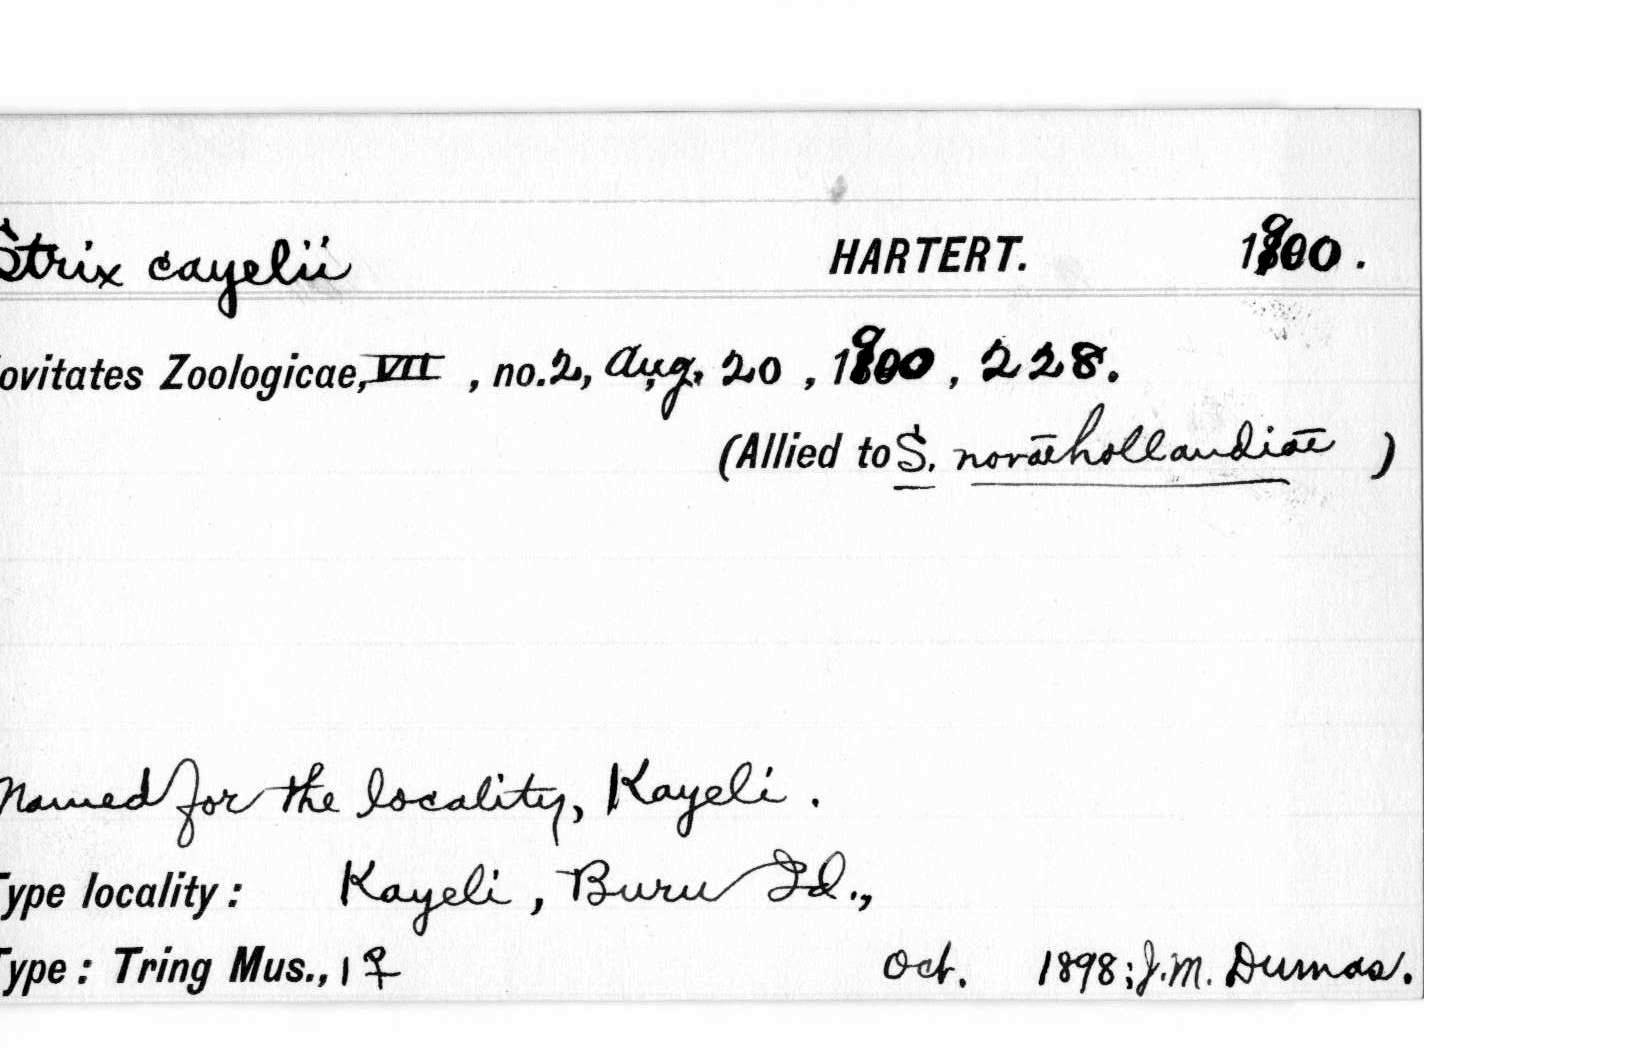 Strix cayelii HARTERT. 1900.
ovitates Zoologicae, VII, no. 2, Aug. 20, 1900, 228.
(Allied to S. novaehollandiae)
Named for the locality, Kayeli.
Type locality: Kayeli, Buru Id.,
Type: Tring Mus., 1 ♀ Oct. 1898; J.M. Dumas.